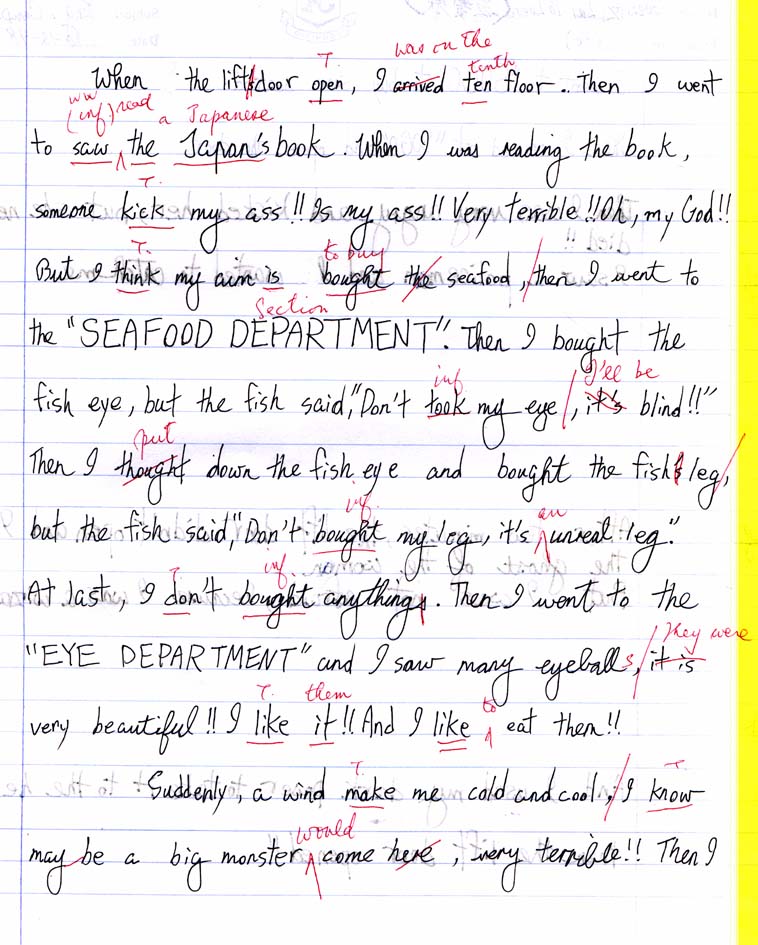 T. was on the
When the lift door open, I arrived ten floor. Then I went
tenth
ww (inf) read a Japanese
to saw the Japan's book. When I was reading the book,
T.
someone kick my ass!! Is my ass!! Very terrible!! Oh, my God!!
T. to buy
But I think my aim is bought the seafood, then I went to
Section
the "SEAFOOD DEPARTMENT". Then I bought the
inf I'll be
fish eye, but the fish said, "Don't took my eye, it's blind!!"
put
Then I thought down the fish eye and bought the fish's leg,
inf. an
but the fish said, "Don't bought my leg, it's unreal leg".
T inf.
At last, I don't bought anythings. Then I went to the
they were
"EYE DEPARTMENT" and I saw many eyeballs, it is
T. them to
very beautiful!! I like it!! And I like eat them!!
T. T.
Suddenly, a wind make me cold and cool, I know
would
may be a big monster come here, very terrible!! Then I